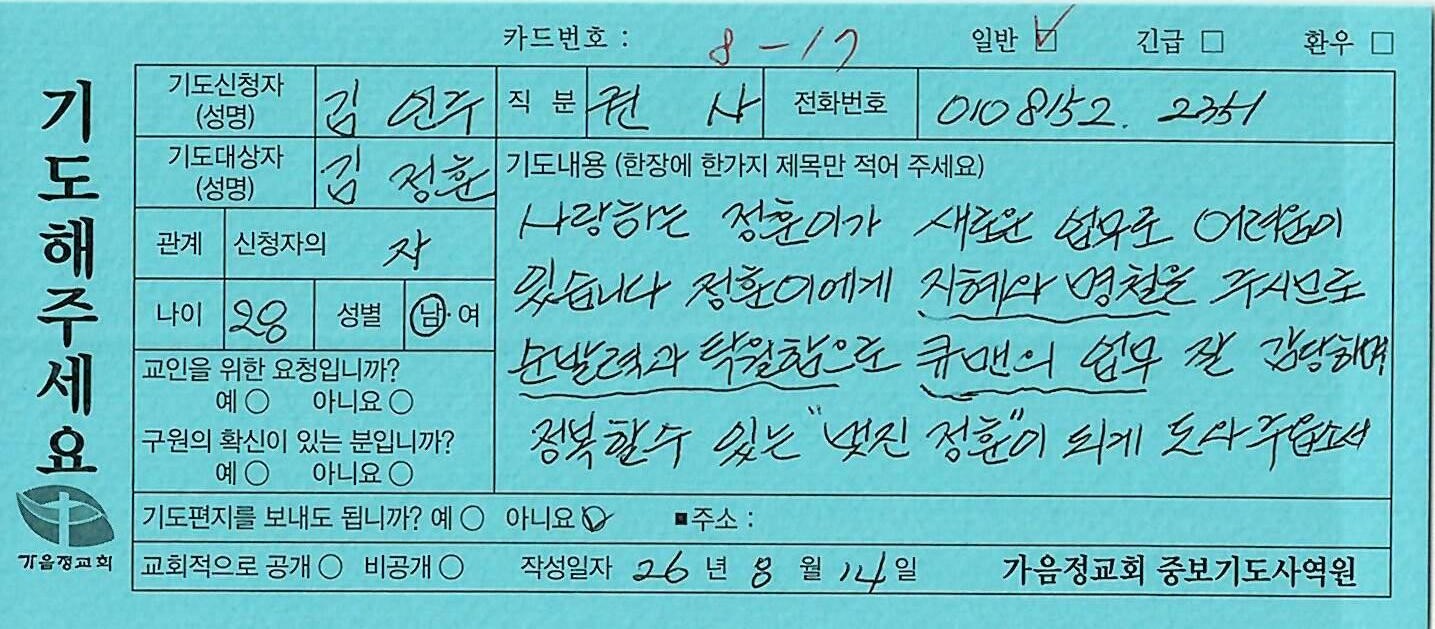 카드번호 : 8-17 일반 ☑ 긴급 □ 환우 □
기도해주세요
기도신청자 (성명) 김연주 직분 권사 전화번호 010 8152. 2351
기도대상자 (성명) 김정훈
관계 신청자의 자
나이 28 성별 남·여
교인을 위한 요청입니까?
예 ○ 아니요 ○
구원의 확신이 있는 분입니까?
예 ○ 아니요 ○
기도내용 (한장에 한가지 제목만 적어 주세요)
사랑하는 정훈이가 새로운 업무로 어려움이
있습니다 정훈이에게 지혜와 명철을 주시므로
순발력과 탁월함으로 큐맨의 업무 잘 감당하며
정복할수 있는 "멋진 정훈"이 되게 도와주옵소서
기도편지를 보내도 됩니까? 예 ○ 아니요 ☑ ■주소 :
교회적으로 공개 ○ 비공개 ○ 작성일자 26 년 8 월 14 일 가음정교회 중보기도사역원
가음정교회